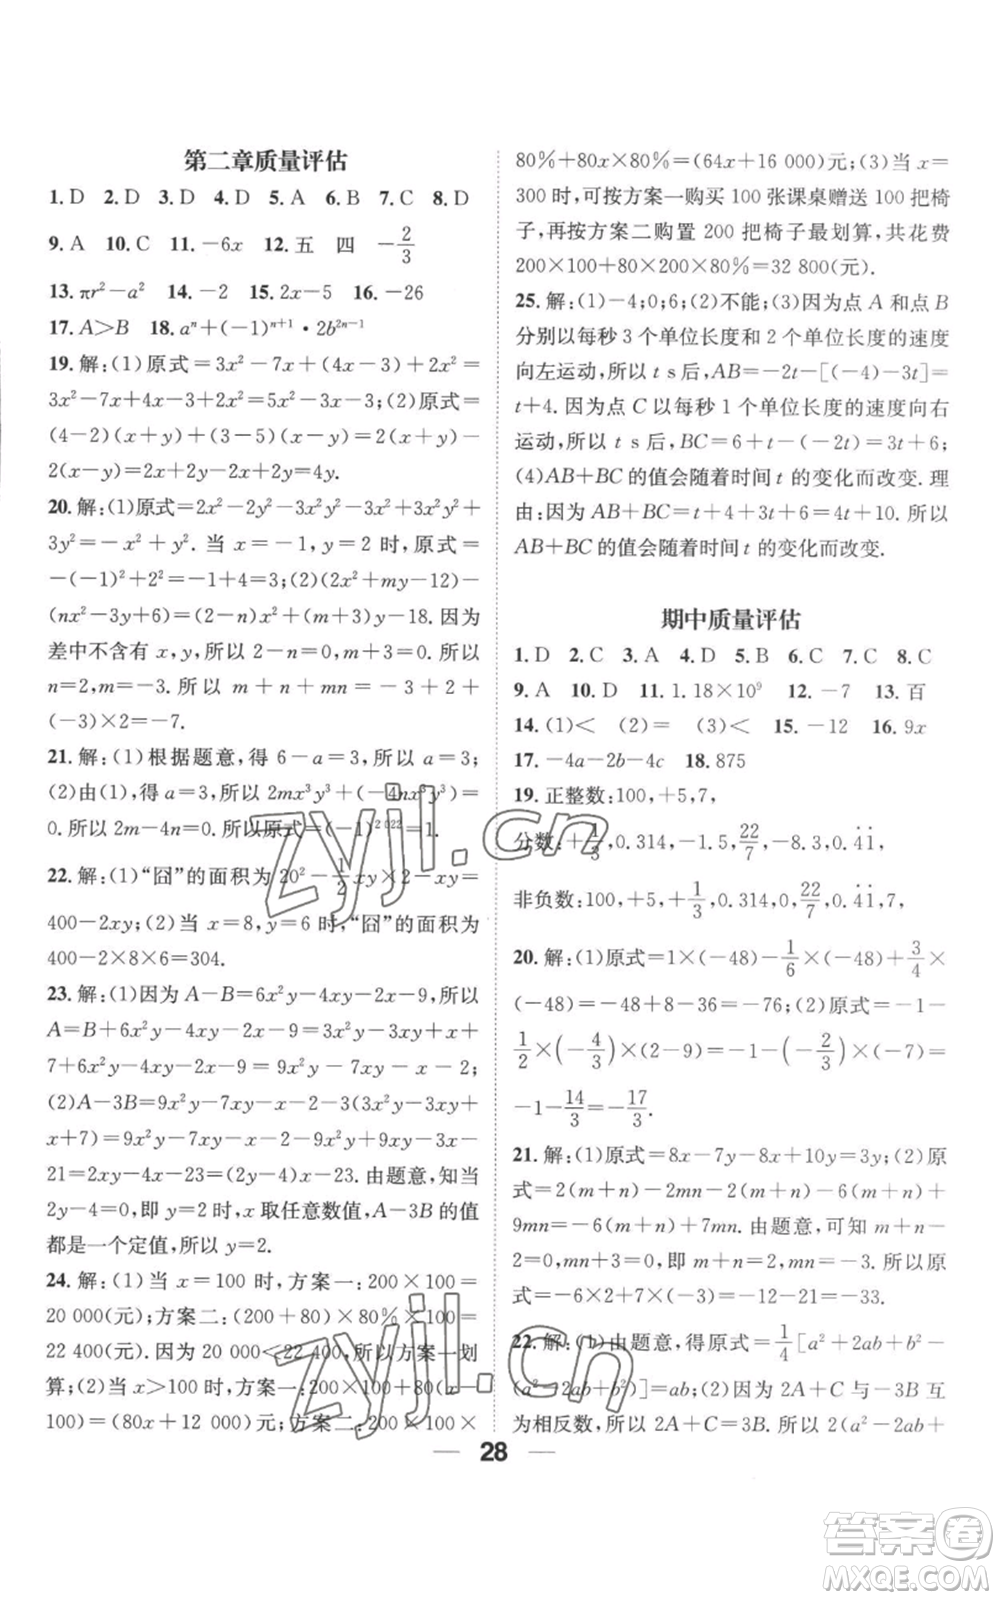 第二章质量评估
1. D 2. D 3. D 4. D 5. A 6. B 7. C 8. D
9. A 10. C 11. -6x 12. 五 四 -2/3
13. πr²-a² 14. -2 15. 2x-5 16. -26
17. A>B 18. aⁿ+(-1)ⁿ⁺¹·2b²ⁿ⁻¹
19. 解:(1)原式=3x²-7x+(4x-3)+2x²=
3x²-7x+4x-3+2x²=5x²-3x-3;(2)原式=
(4-2)(x+y)+(3-5)(x-y)=2(x+y)-
2(x-y)=2x+2y-2x+2y=4y.
20. 解:(1)原式=2x²-2y²-3x²y²-3x²+3x²y²+
3y²=-x²+y². 当 x=-1,y=2 时,原式=
-(-1)²+2²=-1+4=3;(2)(2x²+my-12)-
(nx²-3y+6)=(2-n)x²+(m+3)y-18. 因为
差中不含有 x,y,所以 2-n=0,m+3=0. 所以
n=2,m=-3. 所以 m+n+mn=-3+2+
(-3)×2=-7.
21. 解:(1)根据题意,得 6-a=3,所以 a=3;
(2)由(1),得 a=3,所以 2mx³y³+(-4nx³y³)=
0. 所以 2m-4n=0. 所以原式=(-1)²⁰²²=1.
22. 解:(1)“囧”的面积为 20²-1/2xy×2-xy=
400-2xy;(2)当 x=8,y=6 时,“囧”的面积为
400-2×8×6=304.
23. 解:(1)因为 A-B=6x²y-4xy-2x-9,所以
A=B+6x²y-4xy-2x-9=3x²y-3xy+x+
7+6x²y-4xy-2x-9=9x²y-7xy-x-2;
(2)A-3B=9x²y-7xy-x-2-3(3x²y-3xy+
x+7)=9x²y-7xy-x-2-9x²y+9xy-3x-
21=2xy-4x-23=(2y-4)x-23. 由题意,知当
2y-4=0,即 y=2 时,x 取任意数值,A-3B 的值
都是一个定值,所以 y=2.
24. 解:(1)当 x=100 时,方案一:200×100=
20 000(元);方案二:(200+80)×80%×100=
22 400(元). 因为 20 000<22 400,所以方案一划
算;(2)当 x>100 时,方案一:200×100+80(x-
100)=(80x+12 000)元;方案二:200×100×
80%+80x×80%=(64x+16 000)元;(3)当 x=
300 时,可按方案一购买 100 张课桌赠送 100 把椅
子,再按方案二购置 200 把椅子最划算,共花费
200×100+80×200×80%=32 800(元).
25. 解:(1)-4;0;6;(2)不能;(3)因为点 A 和点 B
分别以每秒 3 个单位长度和 2 个单位长度的速度
向左运动,所以 t s后,AB=-2t-[(-4)-3t]=
t+4. 因为点 C 以每秒 1 个单位长度的速度向右
运动,所以 t s后,BC=6+t-(-2t)=3t+6;
(4)AB+BC 的值会随着时间 t 的变化而改变. 理
由:因为 AB+BC=t+4+3t+6=4t+10. 所以
AB+BC 的值会随着时间 t 的变化而改变.
期中质量评估
1. D 2. C 3. A 4. D 5. B 6. C 7. C 8. C
9. A 10. D 11. 1.18×10⁹ 12. -7 13. 百
14. (1)< (2)= (3)< 15. -12 16. 9x
17. -4a-2b-4c 18. 875
19. 正整数:100,+5,7,
分数:+1/3,0.314,-1.5,22/7,-8.3,0.4̇1̇,
非负数:100,+5,+1/3,0.314,0,22/7,0.4̇1̇,7,
20. 解:(1)原式=1×(-48)-1/6×(-48)+3/4×
(-48)=-48+8-36=-76;(2)原式=-1-
1/2×(-4/3)×(2-9)=-1-(-2/3)×(-7)=
-1-14/3=-17/3.
21. 解:(1)原式=8x-7y-8x+10y=3y;(2)原
式=2(m+n)-2mn-2[4(m+n)]+
9mn=-6(m+n)+7mn. 由题意,可知 m+n-
2=0,mn+3=0,即 m+n=2,mn=-3. 所以原
式=-6×2+7×(-3)=-12-21=-33.
22. 解:(1)由题意,得原式=1/4[a²+2ab+b²-
(a²-2ab+b²)]=ab;(2)因为 2A+C 与-3B 互
为相反数,所以 2A+C=3B. 所以 2(a²-2ab+
28
zyjl.cn
zyjl.cn
答案卷
MXQE.COM